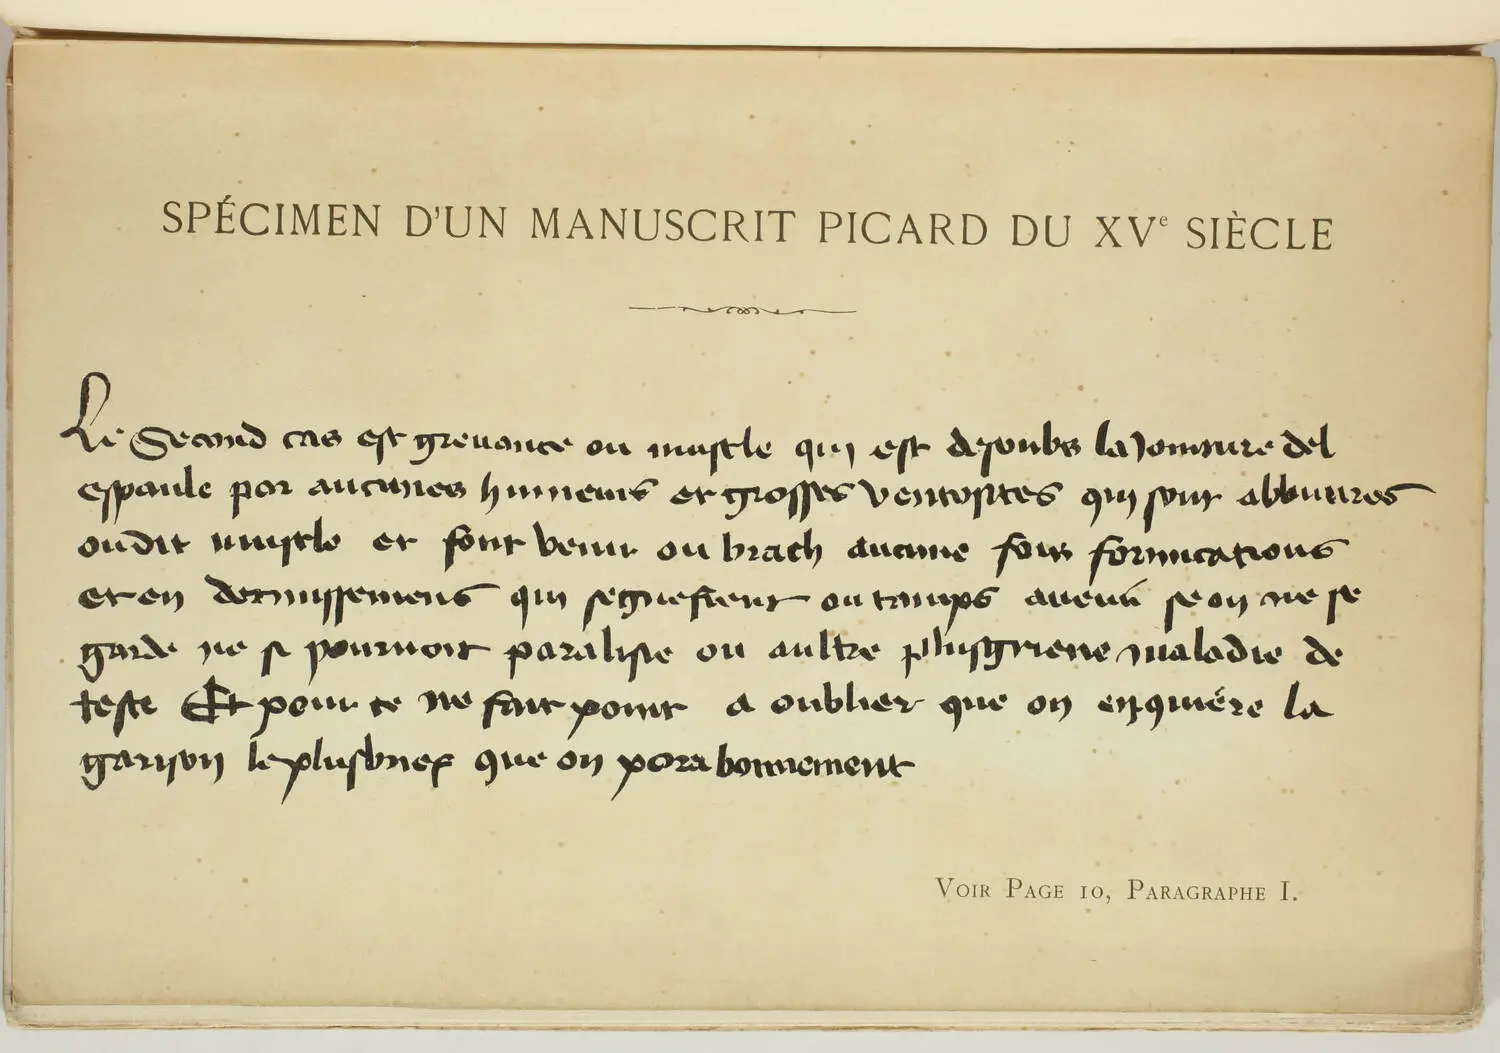 SPÉCIMEN D'UN MANUSCRIT PICARD DU XVe SIÈCLE
Le Second cas est grevance ou muscle qui est desoubs la Joincture del
espaule par aucunes humeurs et grosses ventosites qui sont
oudit muscle et font venir ou brach aucune fois formicacions
et en qui ou tamps se on ne se
garde ne si pourvoit paralisie ou aultre plus griene maladie de
teste Et pour ce ne fait point a oublier que on enquiere la
garison le plus brief que on pora bonnement
VOIR PAGE 10, PARAGRAPHE I.